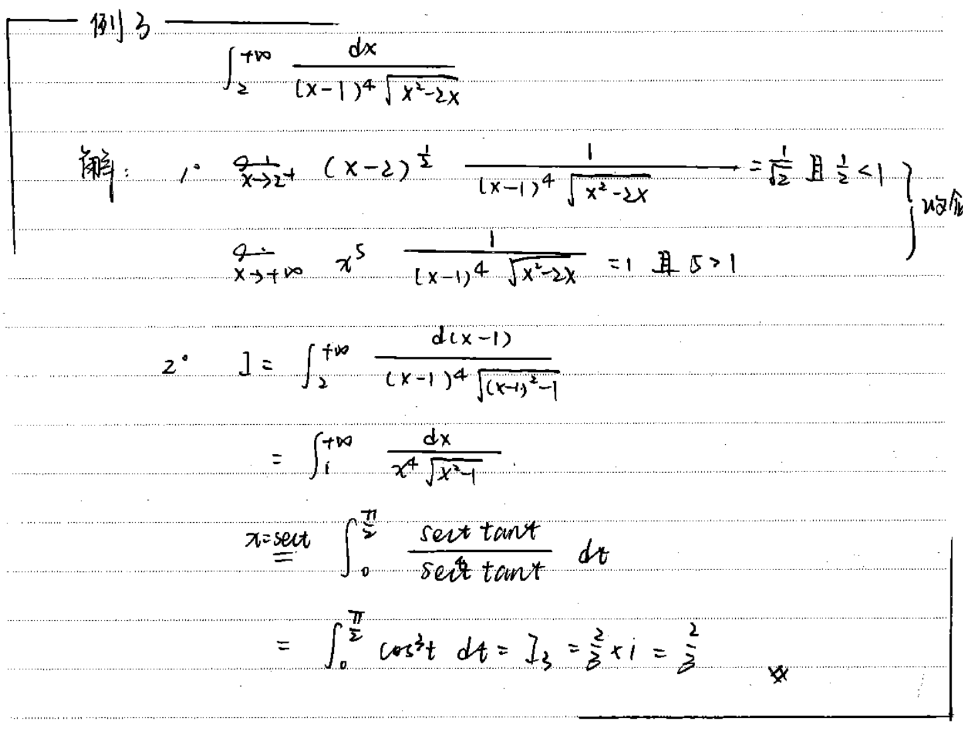 例3
∫₂^{+∞} dx / ((x-1)⁴ √(x²-2x))
解: 1° lim_{x→2⁺} (x-2)^{1/2} 1 / ((x-1)⁴ √(x²-2x)) = 1/√2 且 1/2 < 1 } 收敛
lim_{x→+∞} x⁵ 1 / ((x-1)⁴ √(x²-2x)) = 1 且 5 > 1
2° I = ∫₂^{+∞} d(x-1) / ((x-1)⁴ √((x-1)²-1))
= ∫₁^{+∞} dx / (x⁴ √(x²-1))
x=sect ∫₀^{π/2} sect tant / (sec⁴t tant) dt
= ∫₀^{π/2} cos³t dt = I₃ = 2/3 × 1 = 2/3